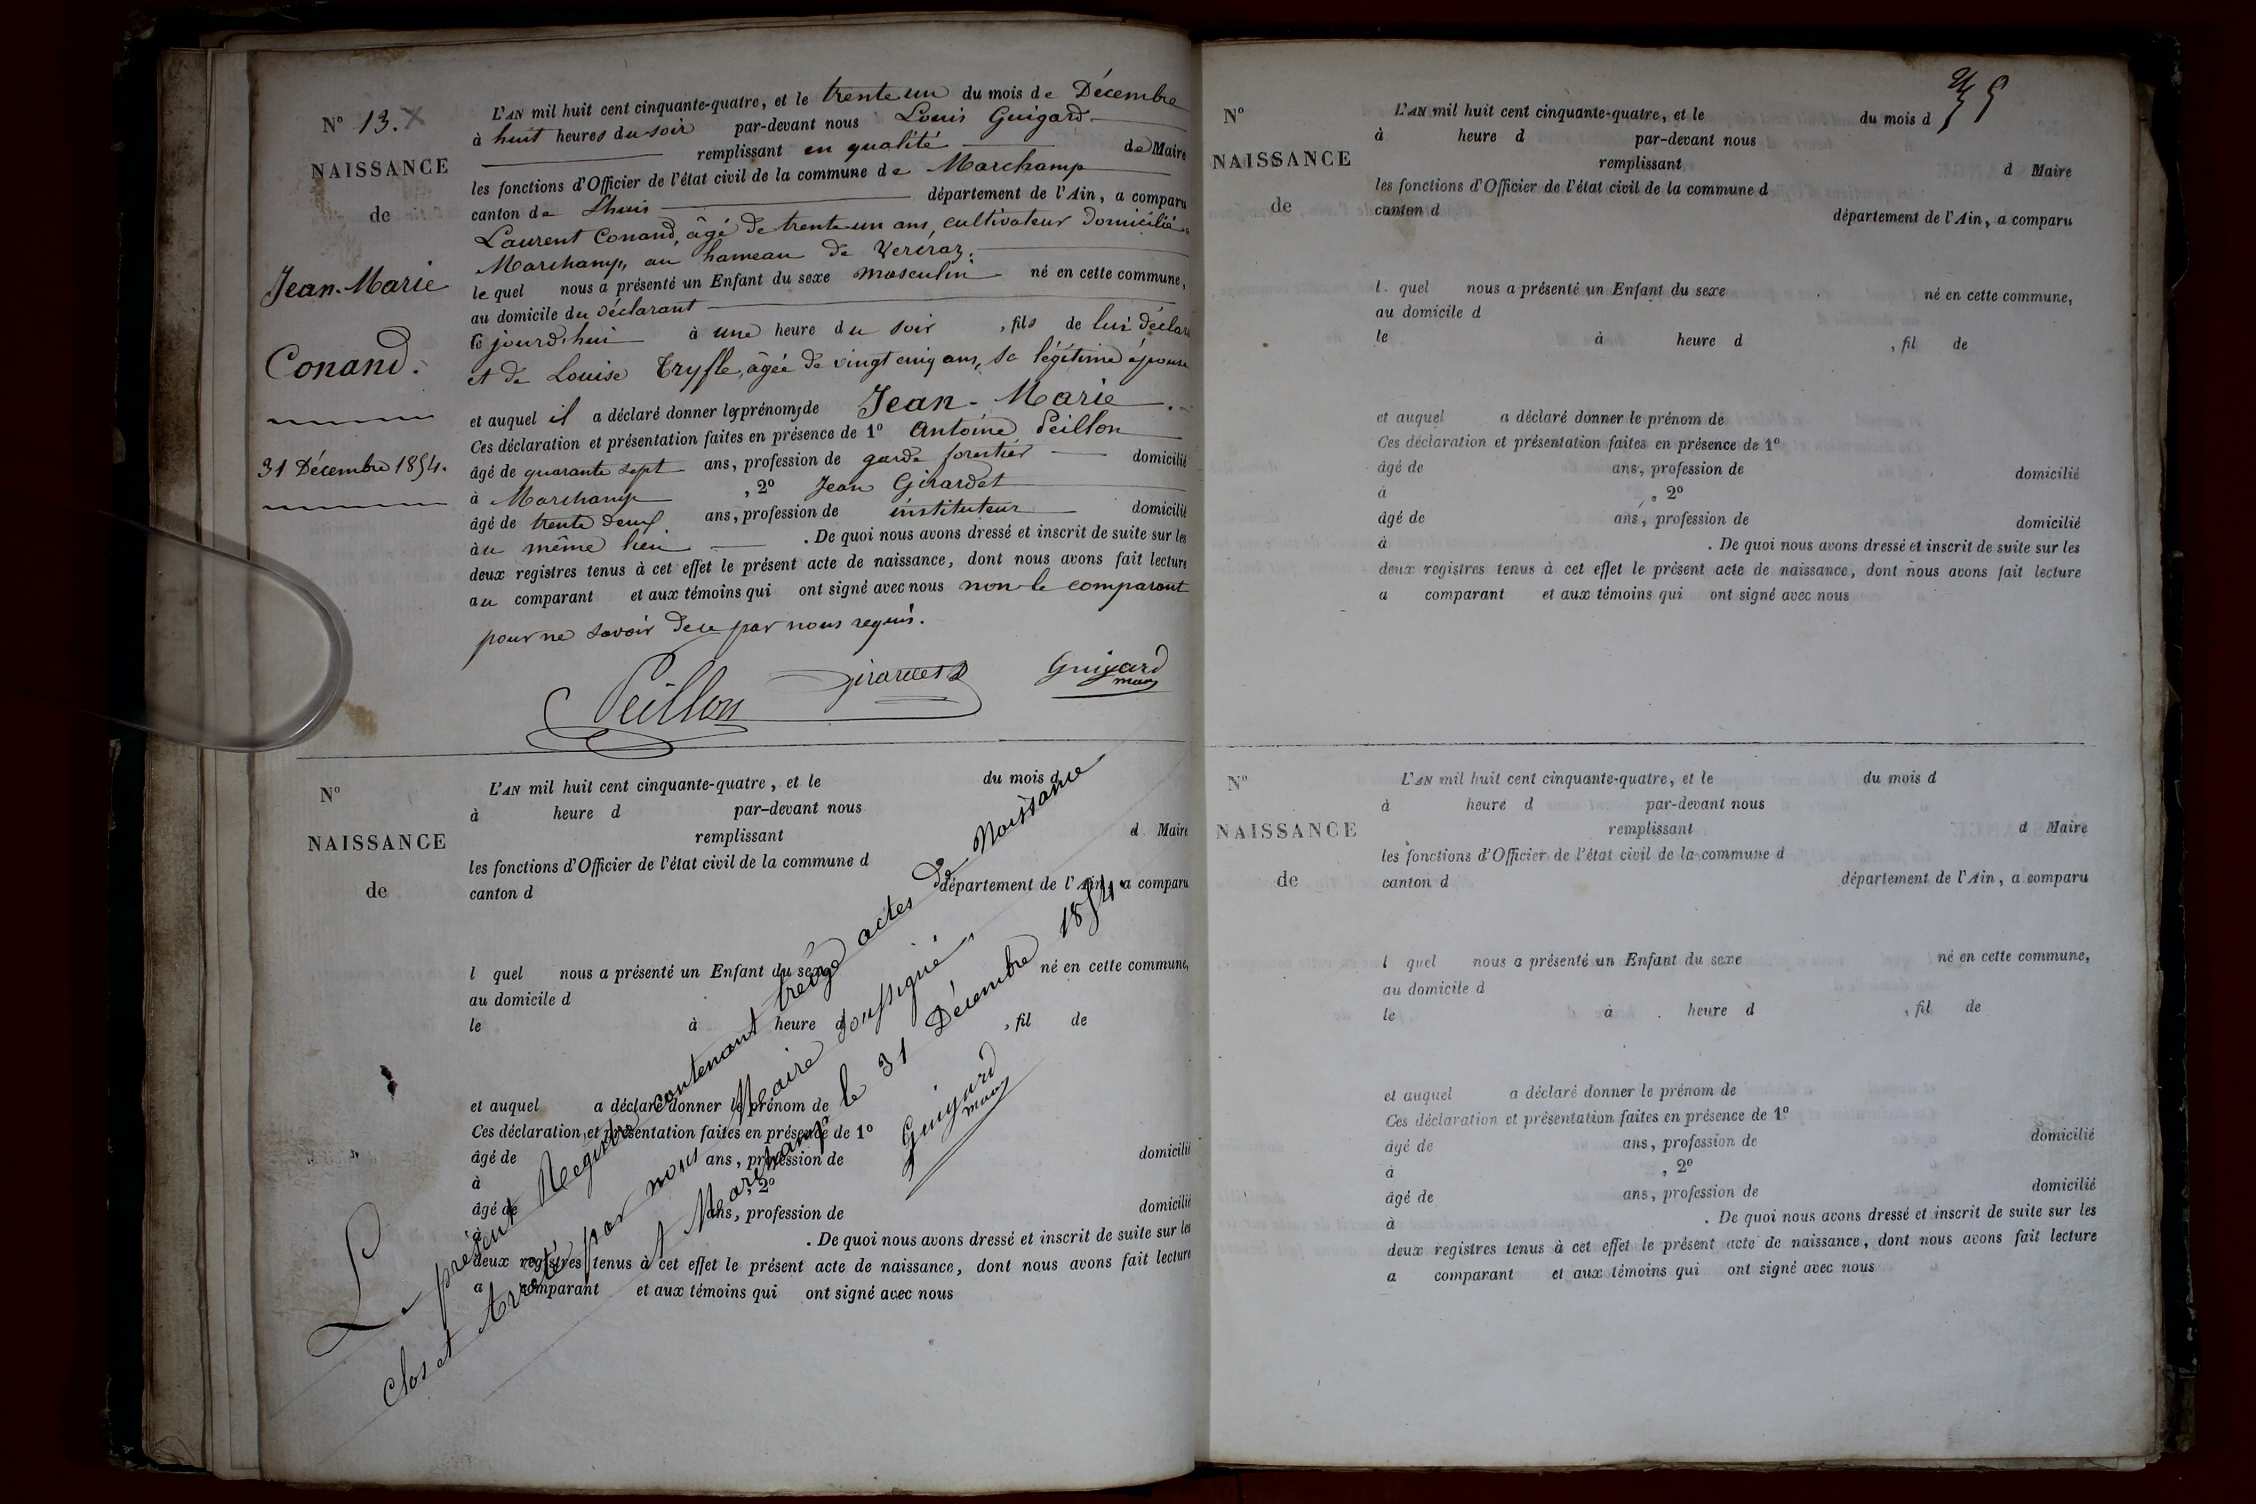 N° 13. X
NAISSANCE
de
Jean-Marie
Conand.
31 Décembre 1854.
L'AN mil huit cent cinquante-quatre, et le trente un du mois de Décembre
à huit heures du soir par-devant nous Louis Guigard
remplissant en qualité de Maire
les fonctions d'Officier de l'état civil de la commune de Marchamp
canton de Lhuis département de l'Ain, a comparu
Laurent Conand, âgé de trente-un ans, cultivateur domicilié à
Marchamp, au hameau de Vercraz.
lequel nous a présenté un Enfant du sexe masculin né en cette commune,
au domicile du déclarant
ce jourd'hui à une heure du soir, fils de lui déclar
et de Louise Tryfle, âgée de vingt cinq ans, sa légitime épouse
et auquel il a déclaré donner les prénoms de Jean-Marie.
Ces déclaration et présentation faites en présence de 1° Antoine Peillon
âgé de quarante sept ans, profession de garde forestier domicilié
à Marchamp, 2° Jean Girardet
âgé de trente deux ans, profession de instituteur domicilié
au même lieu. De quoi nous avons dressé et inscrit de suite sur les
deux registres tenus à cet effet le présent acte de naissance, dont nous avons fait lecture
au comparant et aux témoins qui ont signé avec nous non le comparant
pour ne savoir de ce par nous requis.
Peillon Girardet Guigard
maire
N°
NAISSANCE
de
L'AN mil huit cent cinquante-quatre, et le du mois d
à heure d par-devant nous
remplissant d Maire
les fonctions d'Officier de l'état civil de la commune d
canton d département de l'Ain, a comparu
l quel nous a présenté un Enfant du sexe né en cette commune,
au domicile d
le à heure d , fil de
et auquel a déclaré donner le prénom de
Ces déclaration et présentation faites en présence de 1°
âgé de ans, profession de domicilié
à , 2°
âgé de ans, profession de domicilié
à . De quoi nous avons dressé et inscrit de suite sur les
deux registres tenus à cet effet le présent acte de naissance, dont nous avons fait lecture
a comparant et aux témoins qui ont signé avec nous
Le présent Registre contenant treize actes de Naissance
clos et Arrêté par nous Maire soussigné,
A Marchamp le 31 Décembre 1854.
Guigard
maire
N°
NAISSANCE
de
L'AN mil huit cent cinquante-quatre, et le du mois d
à heure d par-devant nous
remplissant d Maire
les fonctions d'Officier de l'état civil de la commune d
canton d département de l'Ain, a comparu
l quel nous a présenté un Enfant du sexe né en cette commune,
au domicile d
le à heure d , fil de
et auquel a déclaré donner le prénom de
Ces déclaration et présentation faites en présence de 1°
âgé de ans, profession de domicilié
à , 2°
âgé de ans, profession de domicilié
à . De quoi nous avons dressé et inscrit de suite sur les
deux registres tenus à cet effet le présent acte de naissance, dont nous avons fait lecture
a comparant et aux témoins qui ont signé avec nous
N°
NAISSANCE
de
L'AN mil huit cent cinquante-quatre, et le du mois d
à heure d par-devant nous
remplissant d Maire
les fonctions d'Officier de l'état civil de la commune d
canton d département de l'Ain, a comparu
l quel nous a présenté un Enfant du sexe né en cette commune,
au domicile d
le à heure d , fil de
et auquel a déclaré donner le prénom de
Ces déclaration et présentation faites en présence de 1°
âgé de ans, profession de domicilié
à , 2°
âgé de ans, profession de domicilié
à . De quoi nous avons dressé et inscrit de suite sur les
deux registres tenus à cet effet le présent acte de naissance, dont nous avons fait lecture
a comparant et aux témoins qui ont signé avec nous